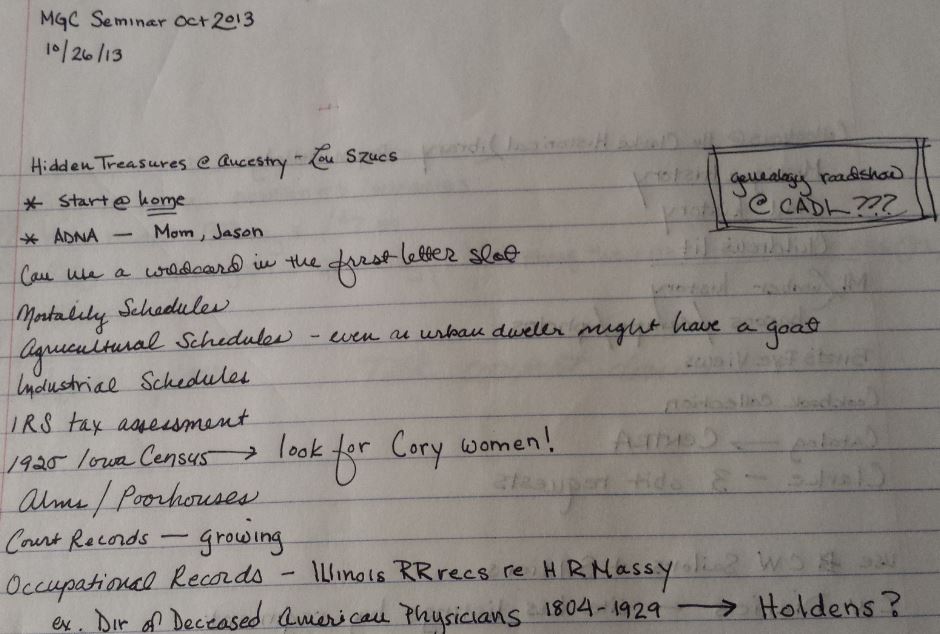 MGC Seminar Oct 2013
10/26/13
Hidden Treasures @ Ancestry - Lou Szucs
* Start @ home
* ADNA — Mom, Jason
genealogy roadshow
@ CADL ???
Can use a wildcard in the first-letter slot
Mortality Schedules
Agricultural Schedules - even an urban dweler might have a goat
Industrial Schedules
IRS tax assessment
1925 Iowa Census → look for Cory women!
Alms / Poorhouses
Court Records — growing
Occupational Records - Illinois RR recs re H R Massy
ex. Dir of Deceased American Physicians 1804-1929 → Holdens?